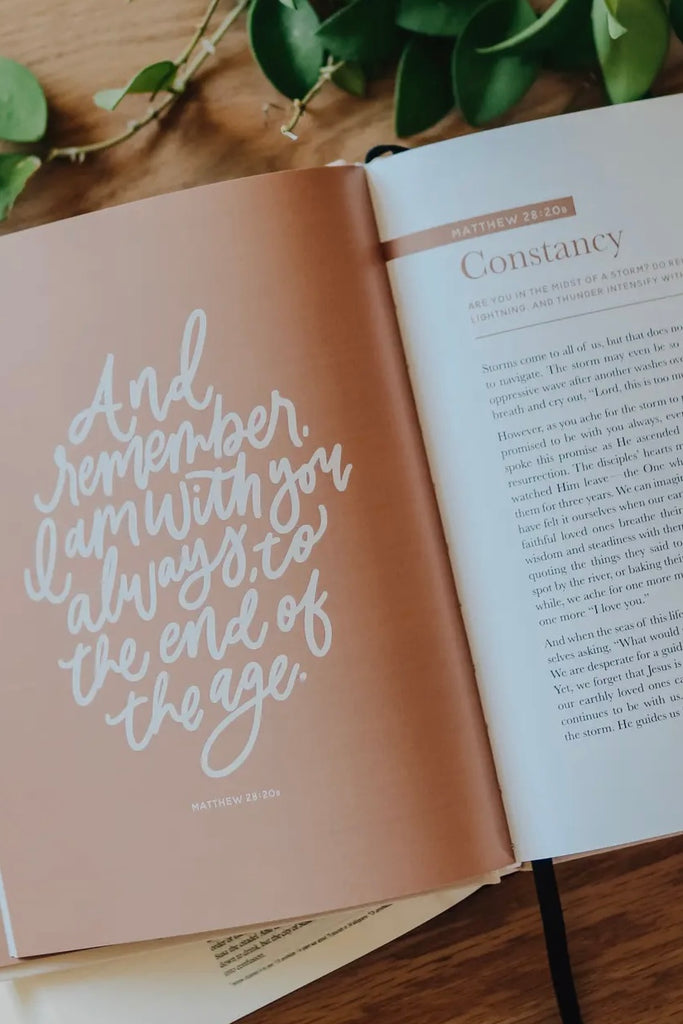 And
remember,
I am with you
always, to
the end of
the age.
MATTHEW 28:20B
MATTHEW 28:20B
Constancy
ARE YOU IN THE MIDST OF A STORM? DO
LIGHTNING, AND THUNDER INTENSIFY WITH
Storms come to all of us, but that does
to navigate. The storm may even be so
oppressive wave after another washes
breath and cry out, “Lord, this is too
However, as you ache for the storm to
promised to be with you always,
spoke this promise as He ascended
resurrection. The disciples’ hearts
watched Him leave—the One
them for three years. We can
have felt it ourselves when our
faithful loved ones breathe their
wisdom and steadiness with
quoting the things they said to
spot by the river, or baking their
while, we ache for one more
one more “I love you.”
And when the seas of this life
selves asking, “What would
We are desperate for a
Yet, we forget that Jesus is
our earthly loved ones
continues to be with us.
the storm. He guides us